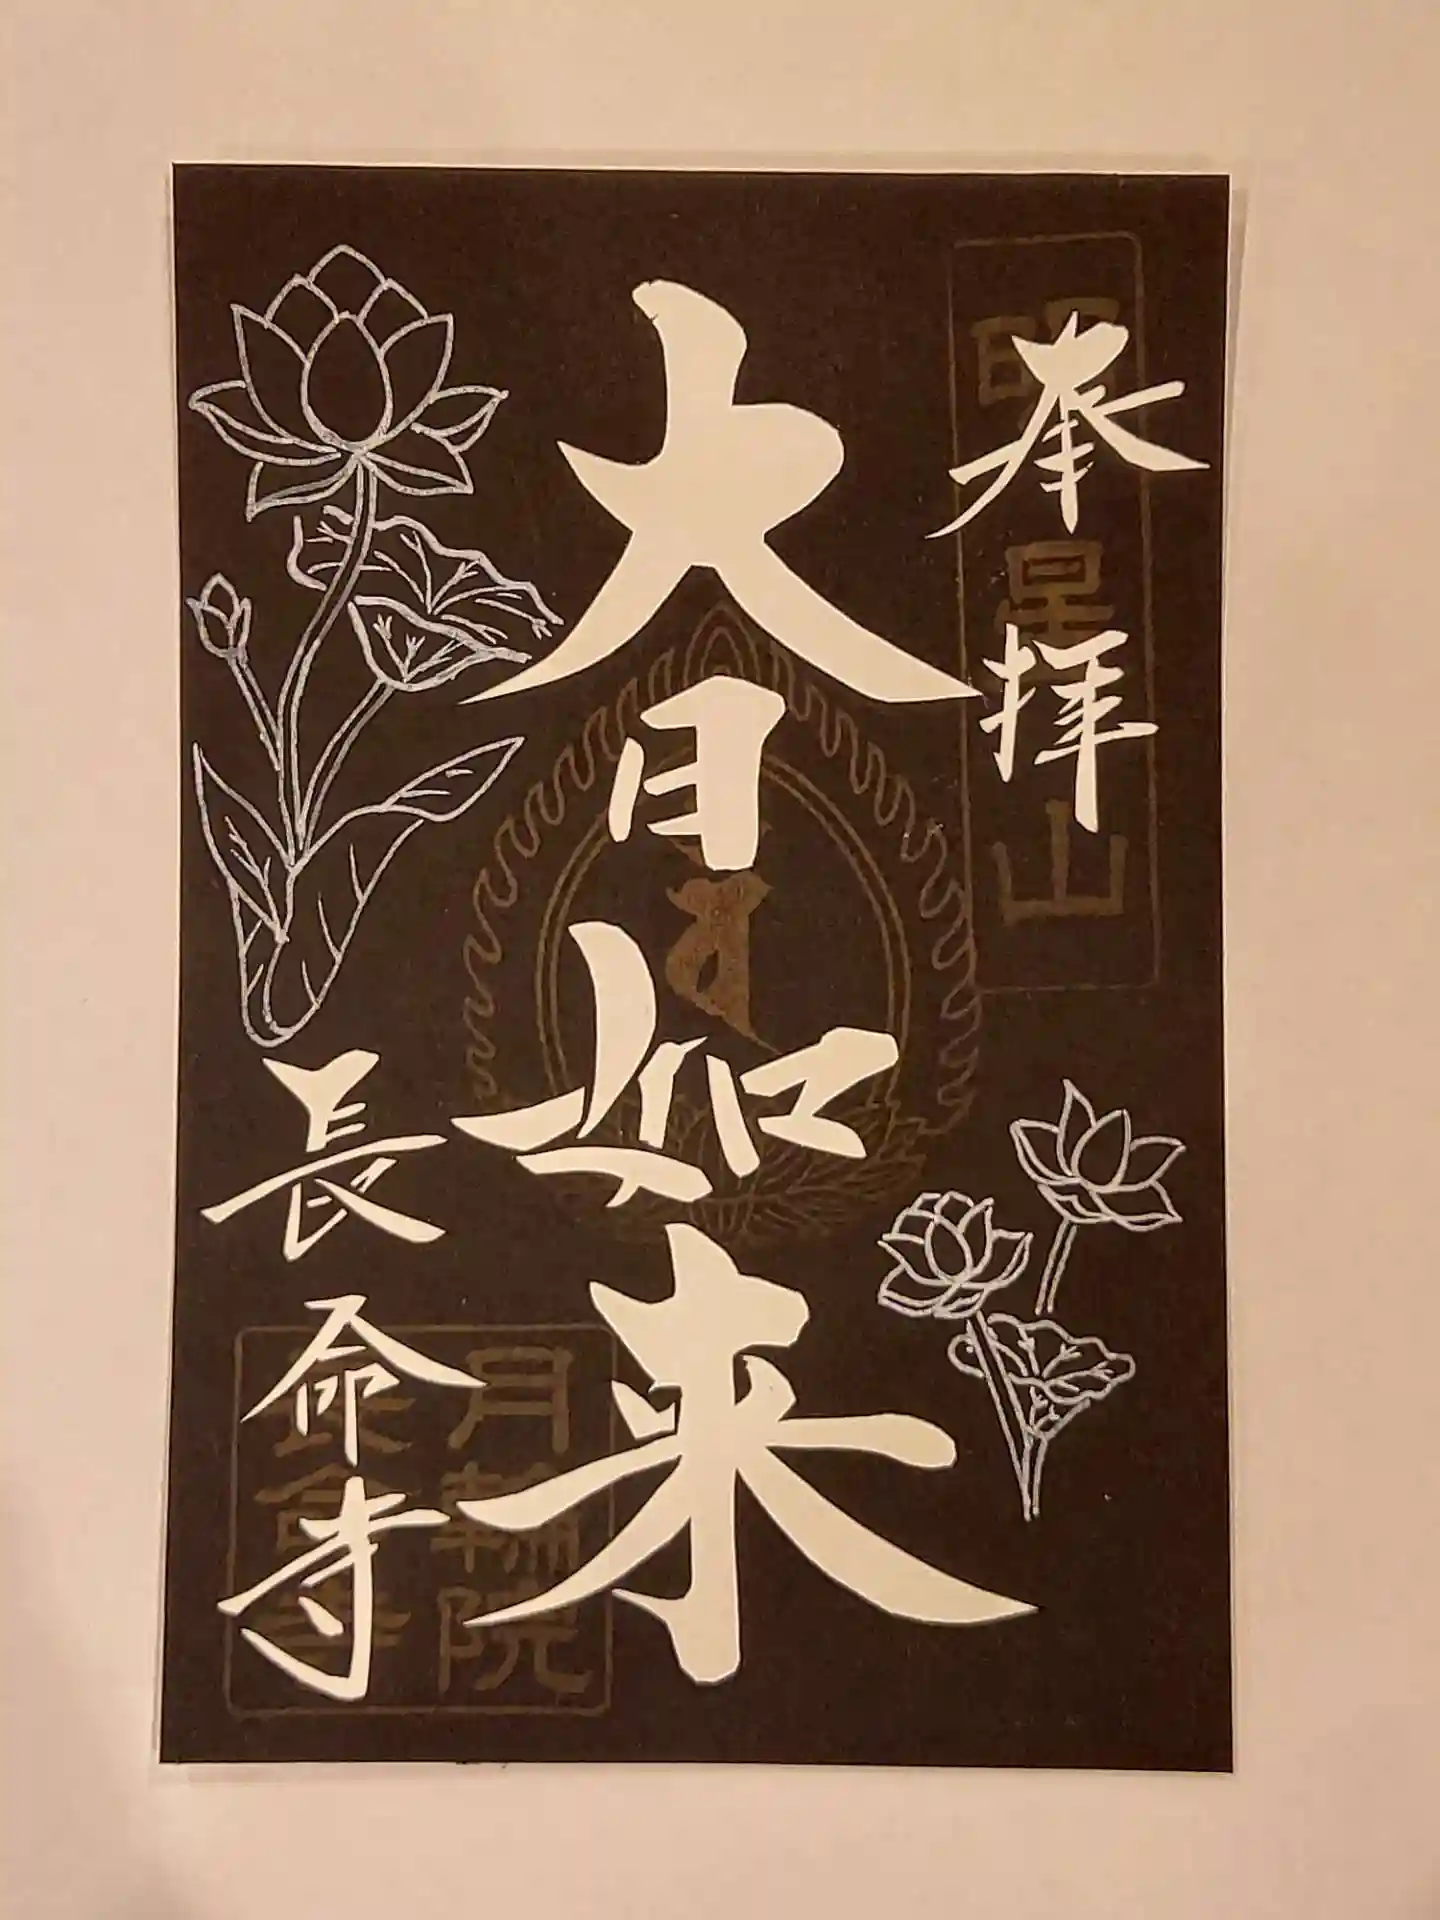 奉拝
明星山
大日如来
長命寺
月輪院
長命寺